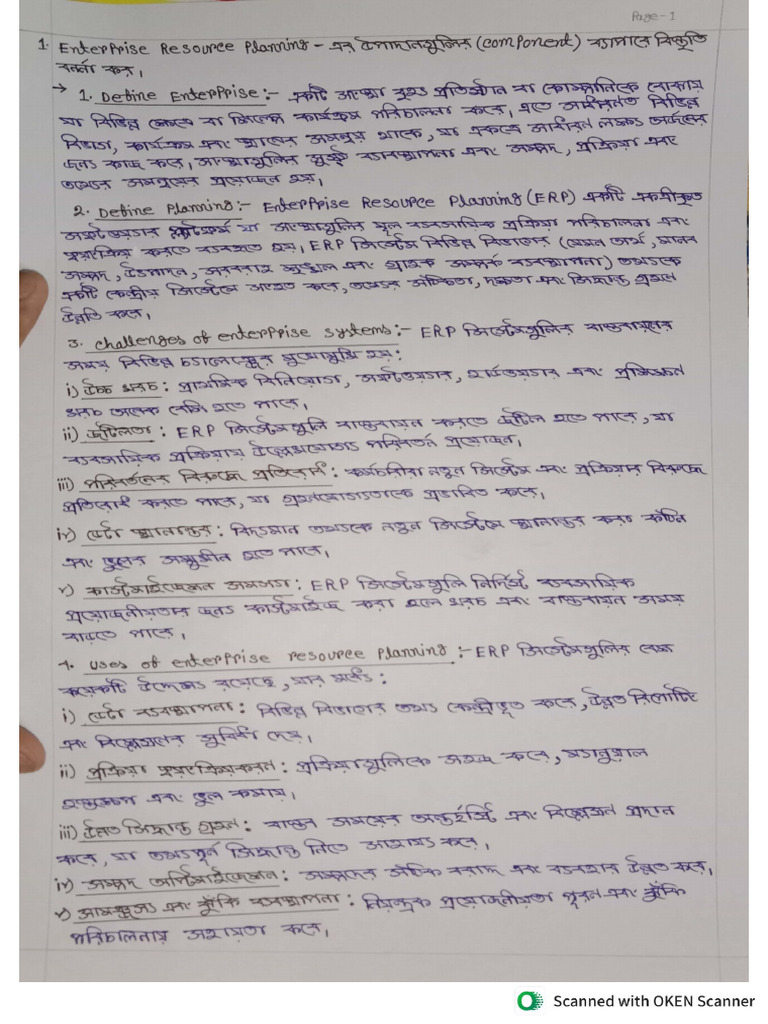 Page-1
1. Enterprise Resource Planning - এর উপাদানগুলির (component) ব্যাপারে বিস্তৃতি
বর্ননা কর।
→ 1. Define Enterprise:- একটি সংস্থা বৃহৎ প্রতিষ্ঠান বা কোম্পানিকে বোঝায়
যা বিভিন্ন ক্ষেত্রে বা শিল্পে কার্যক্রম পরিচালনা করে, এতে সাধারণত বিভিন্ন
বিভাগ, কার্যক্রম এবং স্থানের সমন্বয় থাকে, যা একত্রে সাধারণ লক্ষ্য অর্জনের
জন্য কাজ করে, সংস্থাগুলির সুষ্ঠু ব্যবস্থাপনা এবং সম্পদ, প্রক্রিয়া এবং
তথ্যের সমন্বয়ের প্রয়োজন হয়।
2. Define Planning:- Enterprise Resource Planning (ERP) একটি একীকৃত
সফ্টওয়্যার প্লাটফর্ম যা সংস্থাগুলির মূল ব্যবসায়িক প্রক্রিয়া পরিচালনা এবং
স্বয়ংক্রিয় করতে ব্যবহৃত হয়। ERP সিস্টেম বিভিন্ন বিভাগের (যেমন অর্থ, মানব
সম্পদ, উৎপাদন, সরবরাহ শৃঙ্খল এবং গ্রাহক সম্পর্ক ব্যবস্থাপনা) তথ্যকে
একটি কেন্দ্রীয় সিস্টেমে সংহত করে, তথ্যের সঠিকতা, দক্ষতা এবং সিদ্ধান্ত গ্রহণ
উন্নতি করে।
3. Challenges of enterprise systems:- ERP সিস্টেমগুলির বাস্তবায়নের
সময় বিভিন্ন চ্যালেঞ্জের মুখোমুখি হয়:
i) উচ্চ খরচ: প্রাথমিক বিনিয়োগ, সফ্টওয়্যার, হার্ডওয়্যার এবং প্রশিক্ষণ
খরচ অনেক বেশি হতে পারে।
ii) জটিলতা: ERP সিস্টেমগুলি বাস্তবায়ন করতে জটিল হতে পারে, যা
ব্যবসায়িক প্রক্রিয়ায় উল্লেখযোগ্য পরিবর্তন প্রয়োজন।
iii) পরিবর্তনের বিরুদ্ধে প্রতিরোধ: কর্মচারীরা নতুন সিস্টেম এবং প্রক্রিয়ার বিরুদ্ধে
প্রতিরোধ করতে পারে, যা গ্রহণযোগ্যতাকে প্রভাবিত করে।
iv) ডেটা স্থানান্তর: বিদ্যমান তথ্যকে নতুন সিস্টেমে স্থানান্তর করা কঠিন
এবং ভুলের সম্মুখীন হতে পারে।
v) কাস্টমাইজেশন সমস্যা: ERP সিস্টেমগুলি নির্দিষ্ট ব্যবসায়িক
প্রয়োজনীয়তার জন্য কাস্টমাইজ করা হলে খরচ এবং বাস্তবায়ন সময়
বাড়তে পারে।
4. Uses of enterprise resource planning:- ERP সিস্টেমগুলির বেশ
কয়েকটি উদ্দেশ্য রয়েছে, যার মধ্যে:
i) ডেটা ব্যবস্থাপনা: বিভিন্ন বিভাগের তথ্য কেন্দ্রীভূত করে, উন্নত রিপোর্টিং
এবং বিশ্লেষণের সুবিধা দেয়।
ii) প্রক্রিয়া স্বয়ংক্রিয়করণ: প্রক্রিয়াগুলিকে সহজ করে, ম্যানুয়াল
হস্তক্ষেপ এবং ভুল কমায়।
iii) উন্নত সিদ্ধান্ত গ্রহণ: বাস্তব সময়ের অন্তর্দৃষ্টি এবং বিশ্লেষণ প্রদান
করে, যা তথ্যপূর্ণ সিদ্ধান্ত নিতে সাহায্য করে।
iv) সম্পদ অপ্টিমাইজেশন: সম্পদের সঠিক বরাদ্দ এবং ব্যবহার উন্নত করে।
v) সামঞ্জস্য এবং ঝুঁকি ব্যবস্থাপনা: নিয়ন্ত্রক প্রয়োজনীয়তা পূরণ এবং ঝুঁকি
পরিচালনায় সহায়তা করে।
Scanned with OKEN Scanner